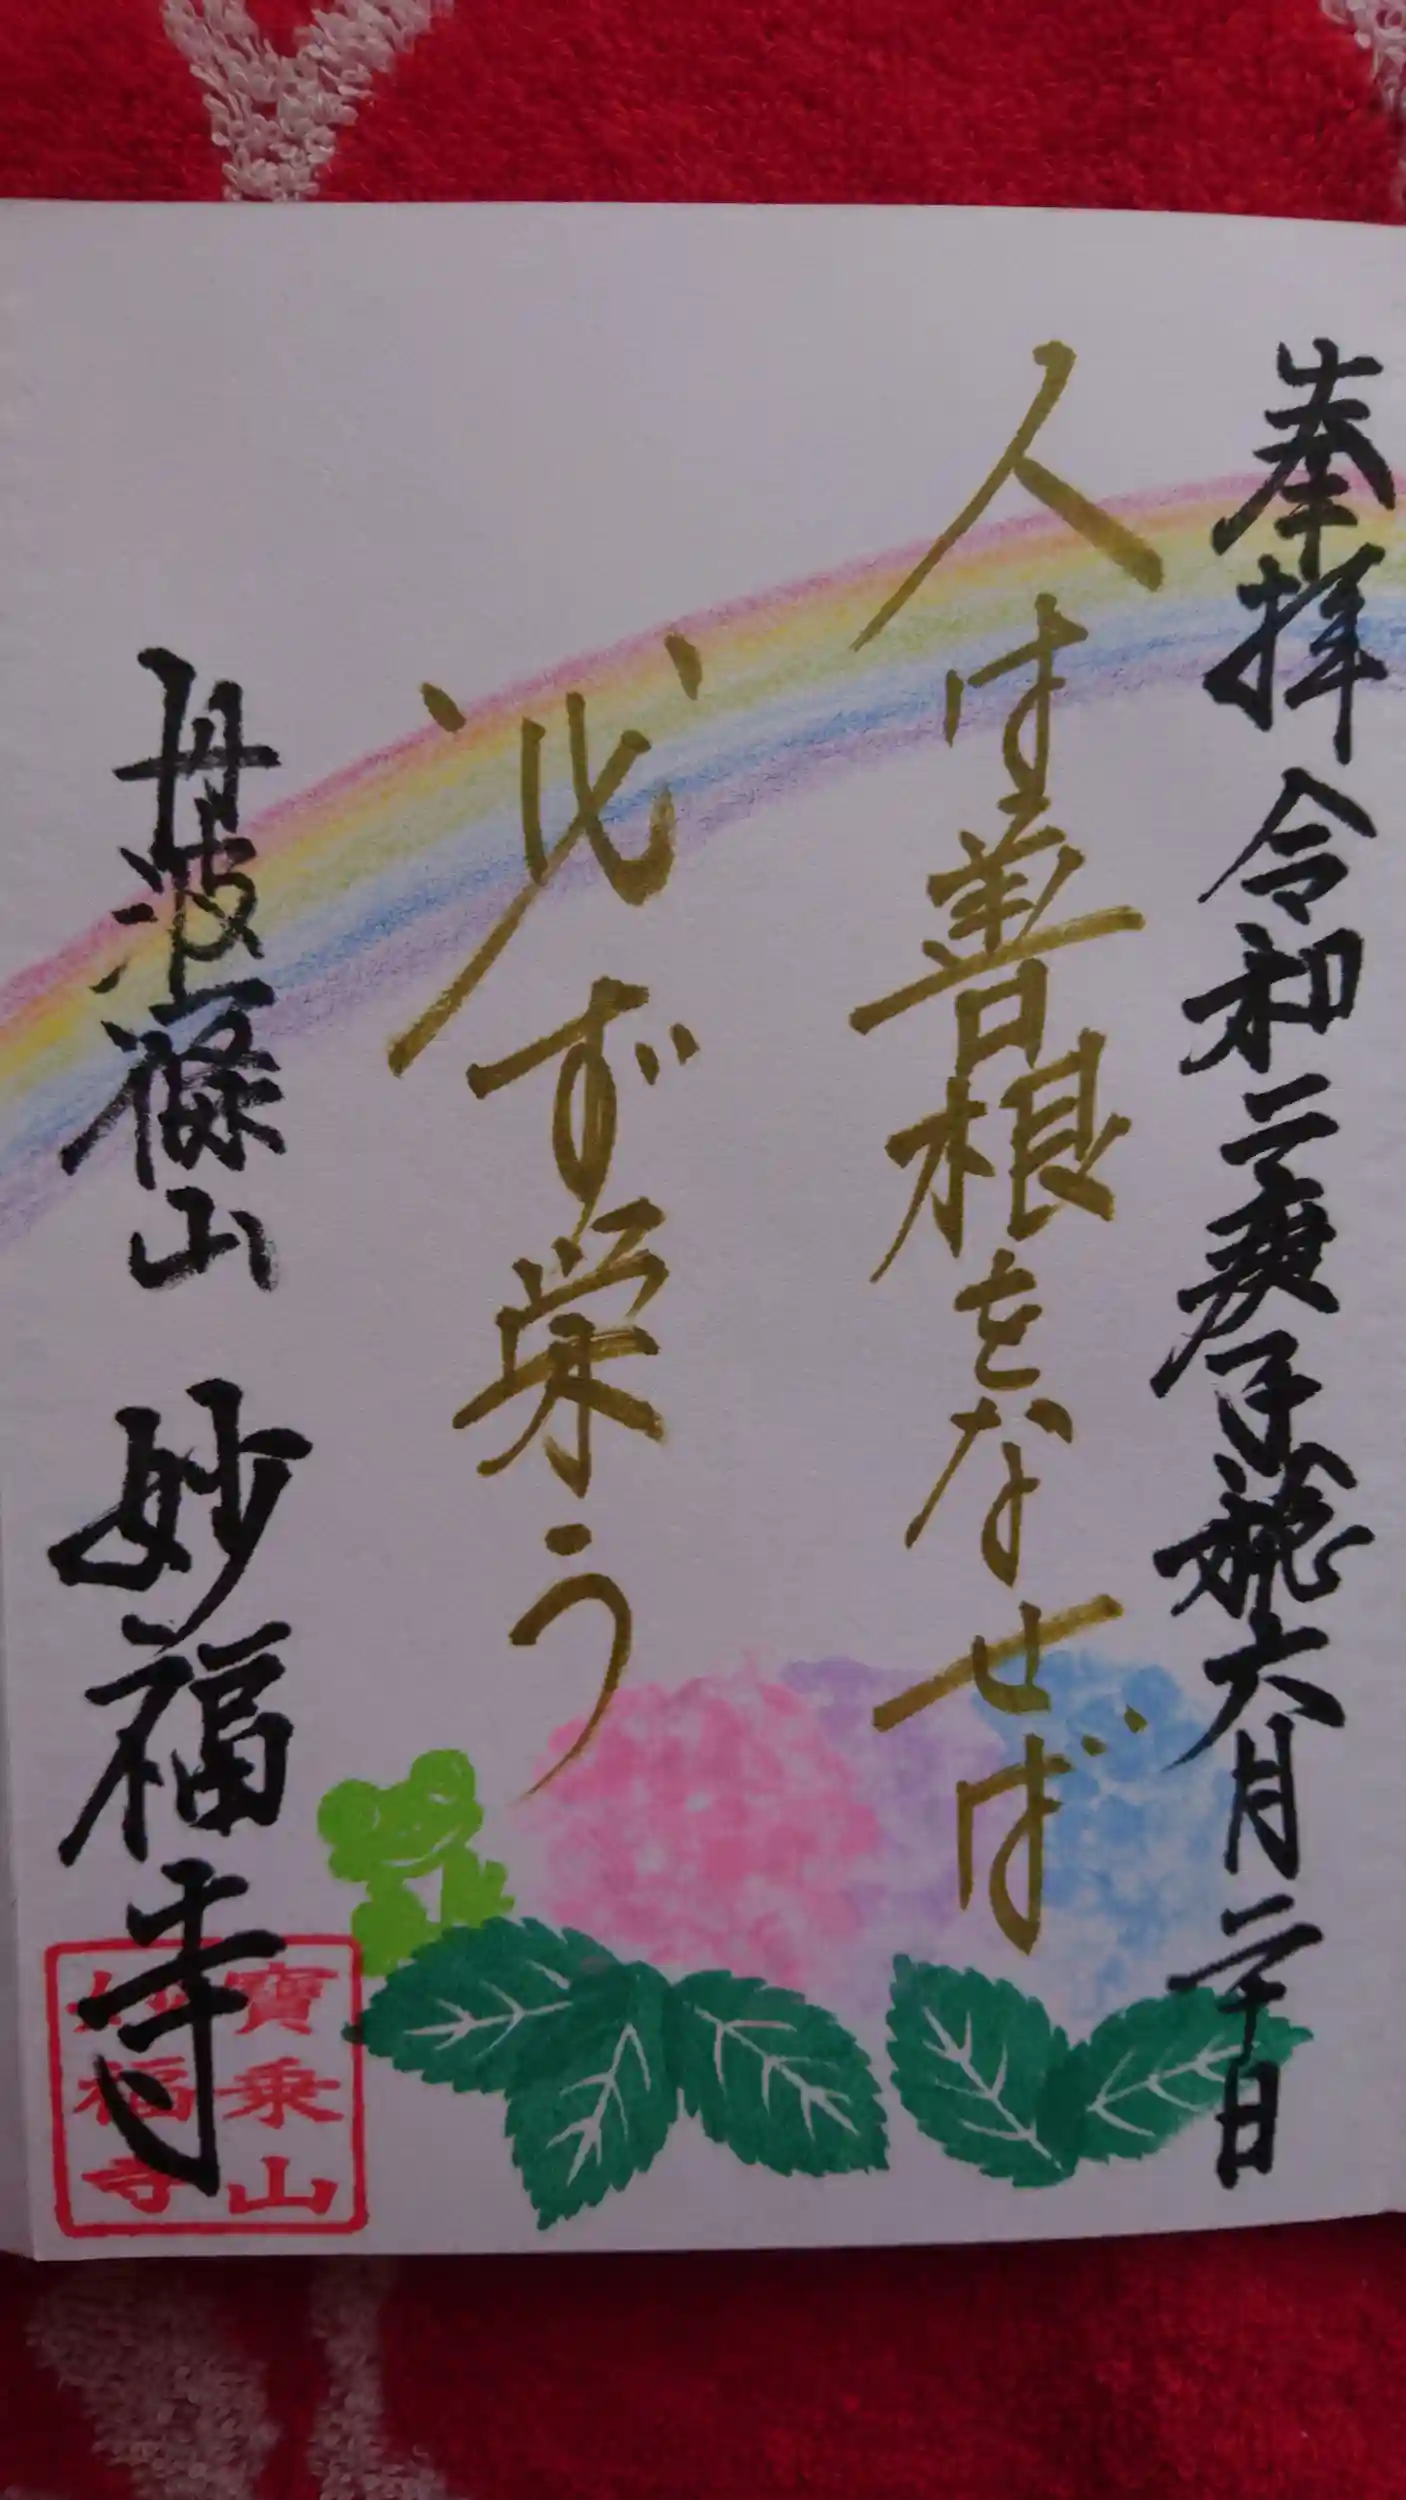 奉拝 令和二庚子歳六月二十日
人は善根をなせば
必ず栄う
丹波篠山 妙福寺
寶乗山
妙福寺